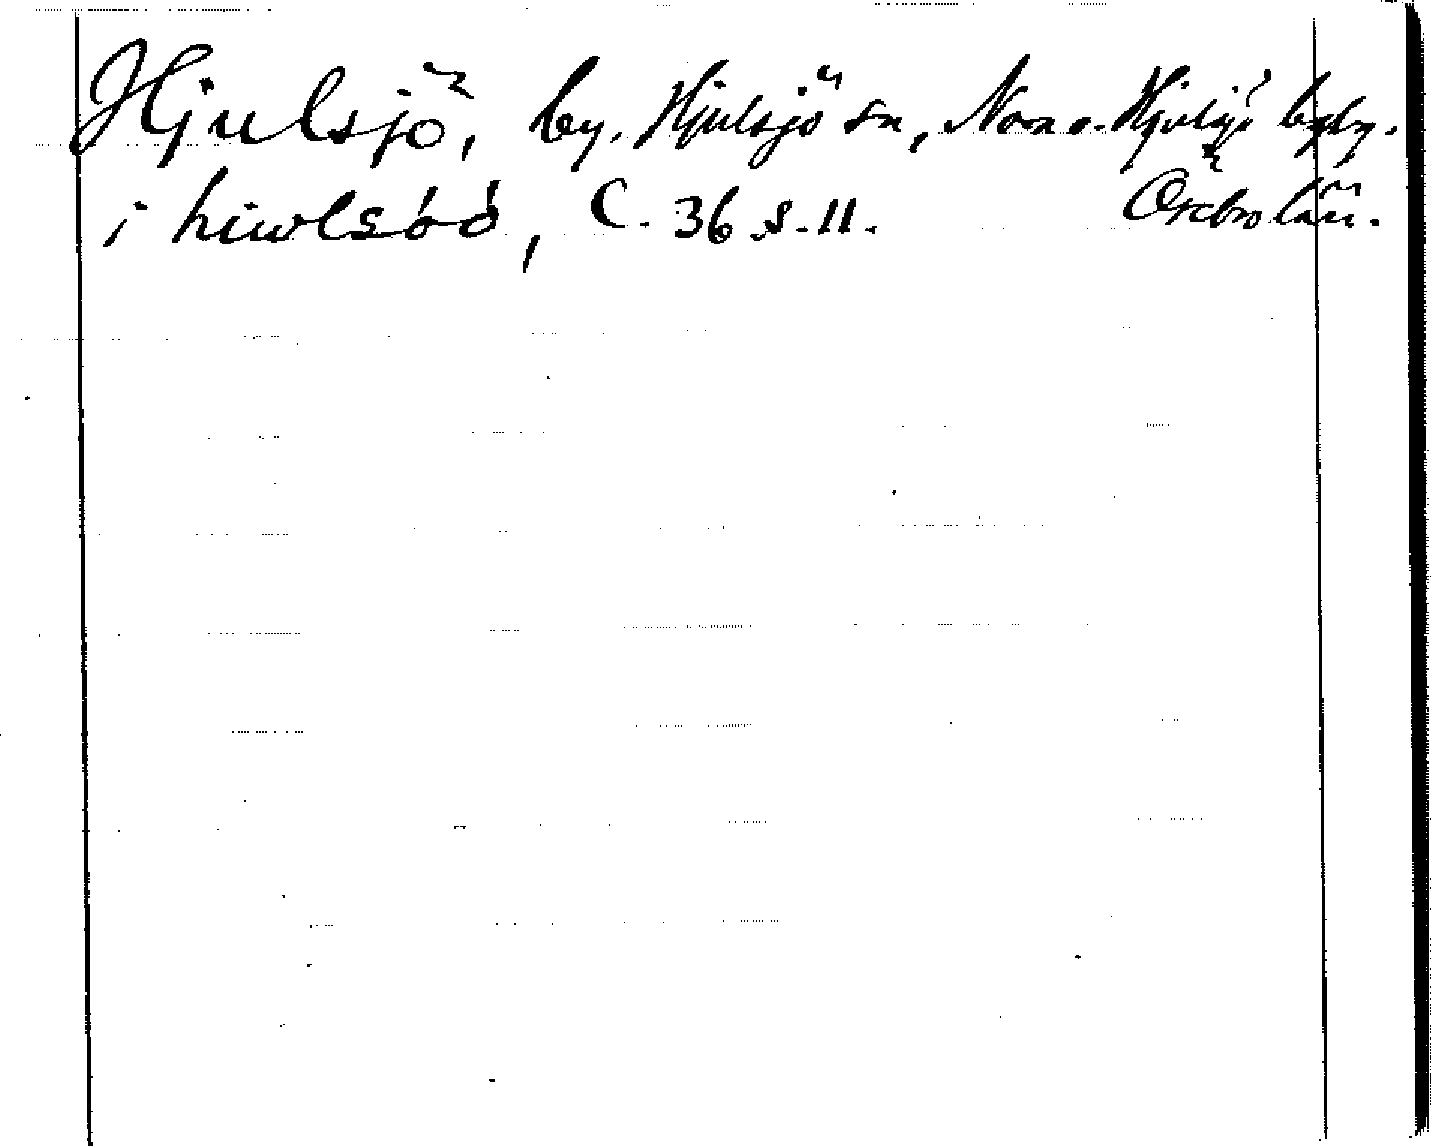 Hjulsjö, by. Hjulsjö sn, Nora o. Hjulsjö bgby.
i hiwlsóó, C. 36 s. 11. Örebro län.